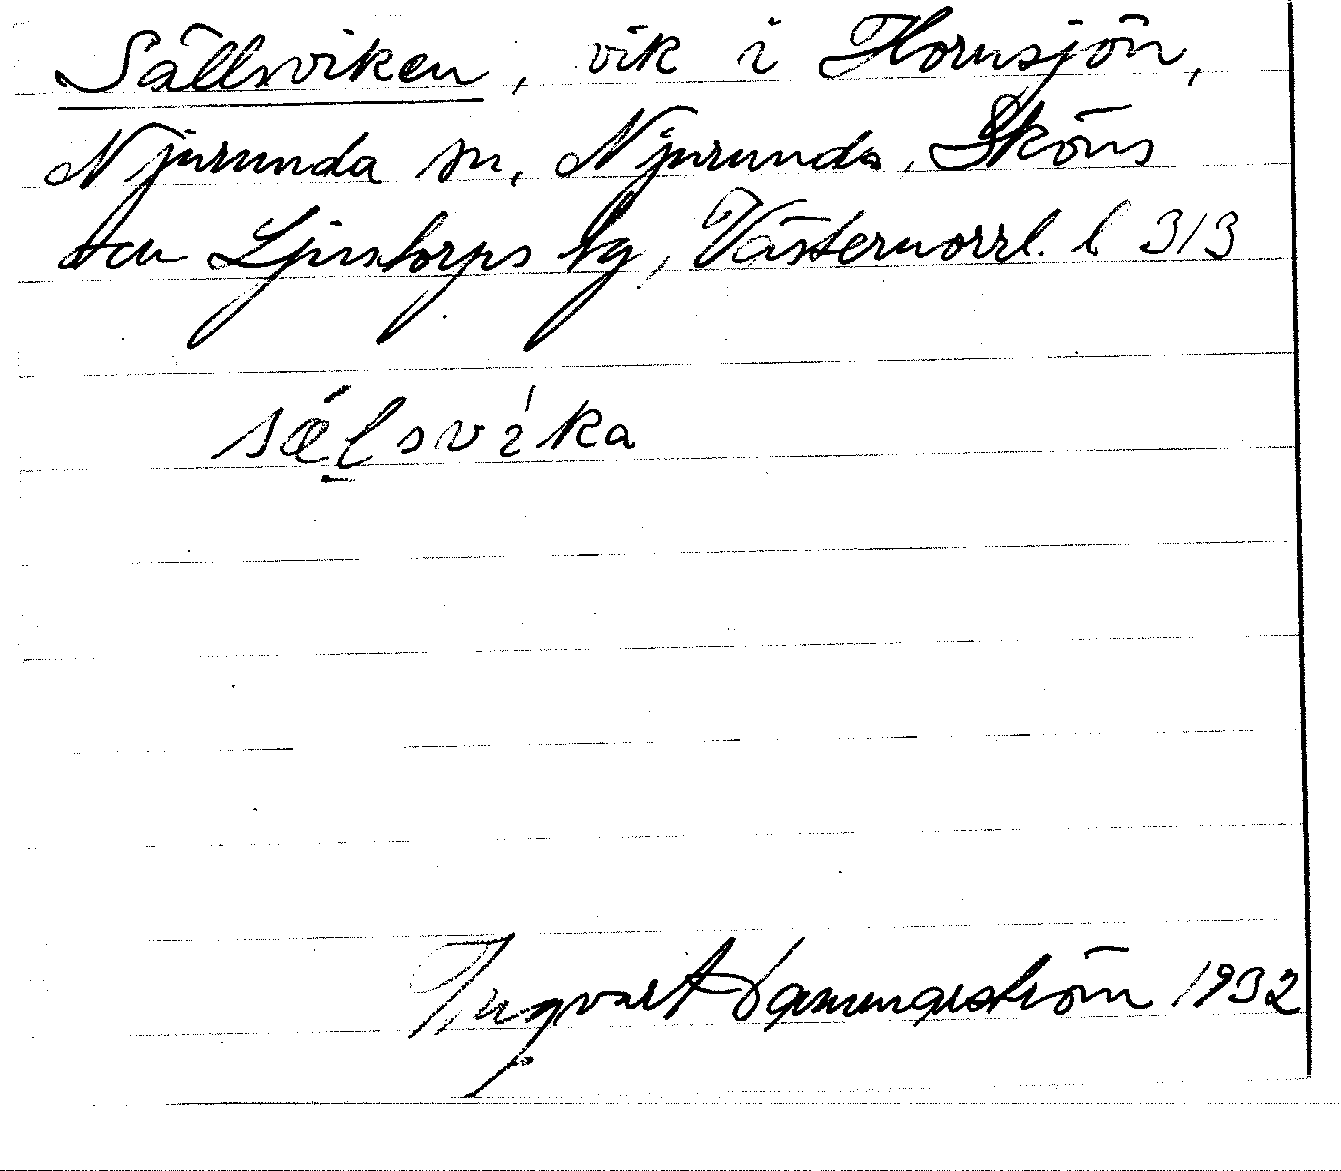 Sällsviken, vik i Hornsjön,
Njurunda sn, Njurunda, Sköns
och Ljustorps tg, Västernorrl. l 313
sælsvika
Ingvart 1932